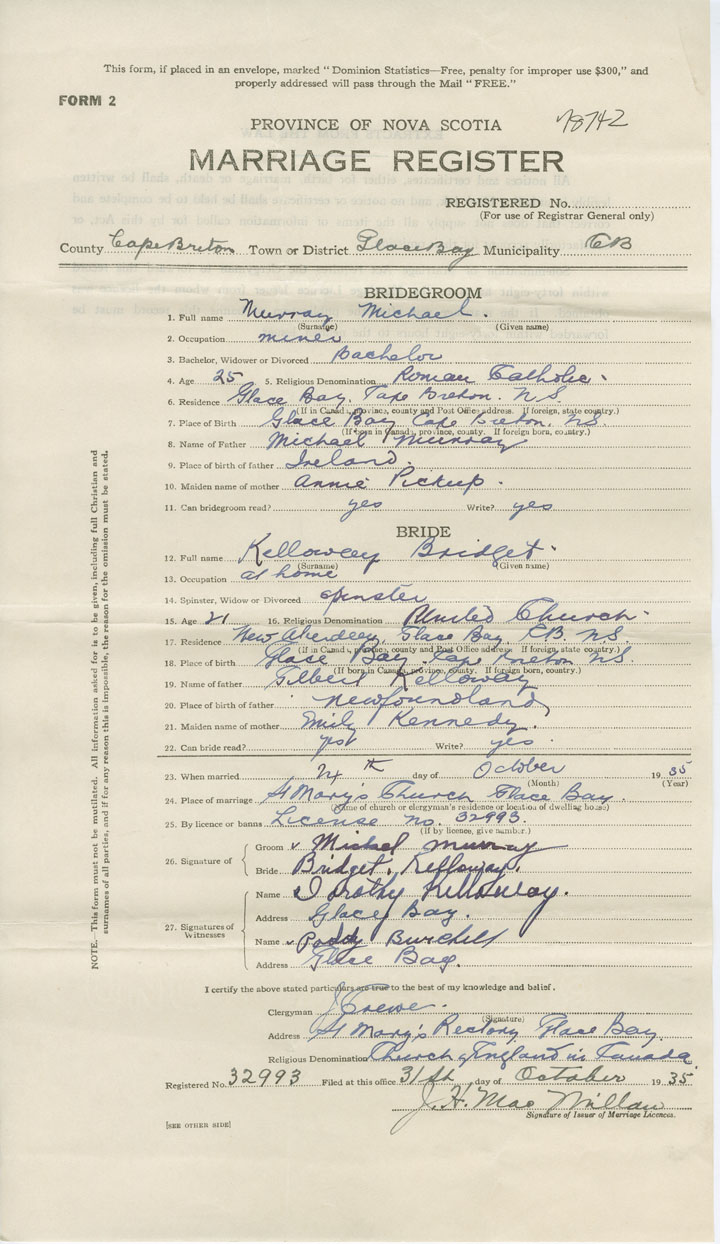 This form, if placed in an envelope, marked "Dominion Statistics—Free, penalty for improper use $300," and
properly addressed will pass through the Mail "FREE."
FORM 2
PROVINCE OF NOVA SCOTIA 78742
MARRIAGE REGISTER
REGISTERED No.
(For use of Registrar General only)
County Cape Breton Town or District Glace Bay Municipality CB
BRIDEGROOM
1. Full name Murray Michael.
(Surname) (Given name)
2. Occupation miner
3. Bachelor, Widower or Divorced Bachelor
4. Age 25 5. Religious Denomination Roman Catholic.
6. Residence Glace Bay. Cape Breton. N.S.
(If in Canada, province, county and Post Office address. If foreign, state country.)
7. Place of Birth Glace Bay Cape Breton. N.S.
(If born in Canada, province, county. If foreign born, country.)
8. Name of Father Michael Murray
9. Place of birth of father Ireland.
10. Maiden name of mother Annie Pickup.
11. Can bridegroom read? yes Write? yes
BRIDE
12. Full name Kelloway Bridget.
(Surname) (Given name)
13. Occupation at home
14. Spinster, Widow or Divorced spinster
15. Age 21 16. Religious Denomination United Church.
17. Residence New Aberdeen, Glace Bay, C.B. N.S.
(If in Canada, province, county and Post Office address. If foreign, state country.)
18. Place of birth Glace Bay Cape Breton N.S.
(If born in Canada, province, county. If foreign born, country.)
19. Name of father Gilbert Kelloway
20. Place of birth of father Newfoundland
21. Maiden name of mother Emily Kennedy.
22. Can bride read? yes Write? yes.
23. When married 24th day of October 1935
(Month) (Year)
24. Place of marriage St Mary's Church Glace Bay.
(Name of church or clergyman's residence or location of dwelling house)
25. By licence or banns License no. 32993.
(If by licence, give number.)
26. Signature of
Groom Michael Murray
Bride Bridget Kelloway.
27. Signatures of Witnesses
Name Dorothy Kelloway.
Address Glace Bay.
Name Paddy Burchell
Address Glace Bay.
I certify the above stated particulars are true to the best of my knowledge and belief.
Clergyman J Crewe.
(Signature)
Address St Mary's Rectory Glace Bay.
Religious Denomination Church of England in Canada
Registered No. 32993 Filed at this office 31st day of October 1935
J. H. MacMillan
Signature of Issuer of Marriage Licences.
[SEE OTHER SIDE]
NOTE.—This form must not be mutilated. All information asked for is to be given, including full Christian and
surnames of all parties, and if for any reason this is impossible, the reason for the omission must be stated.